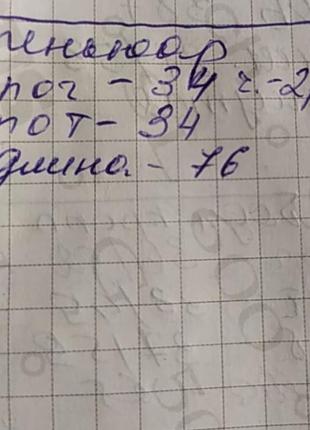 пеньюар
пог - 34 г. - 2,
пот - 34
длина - 76